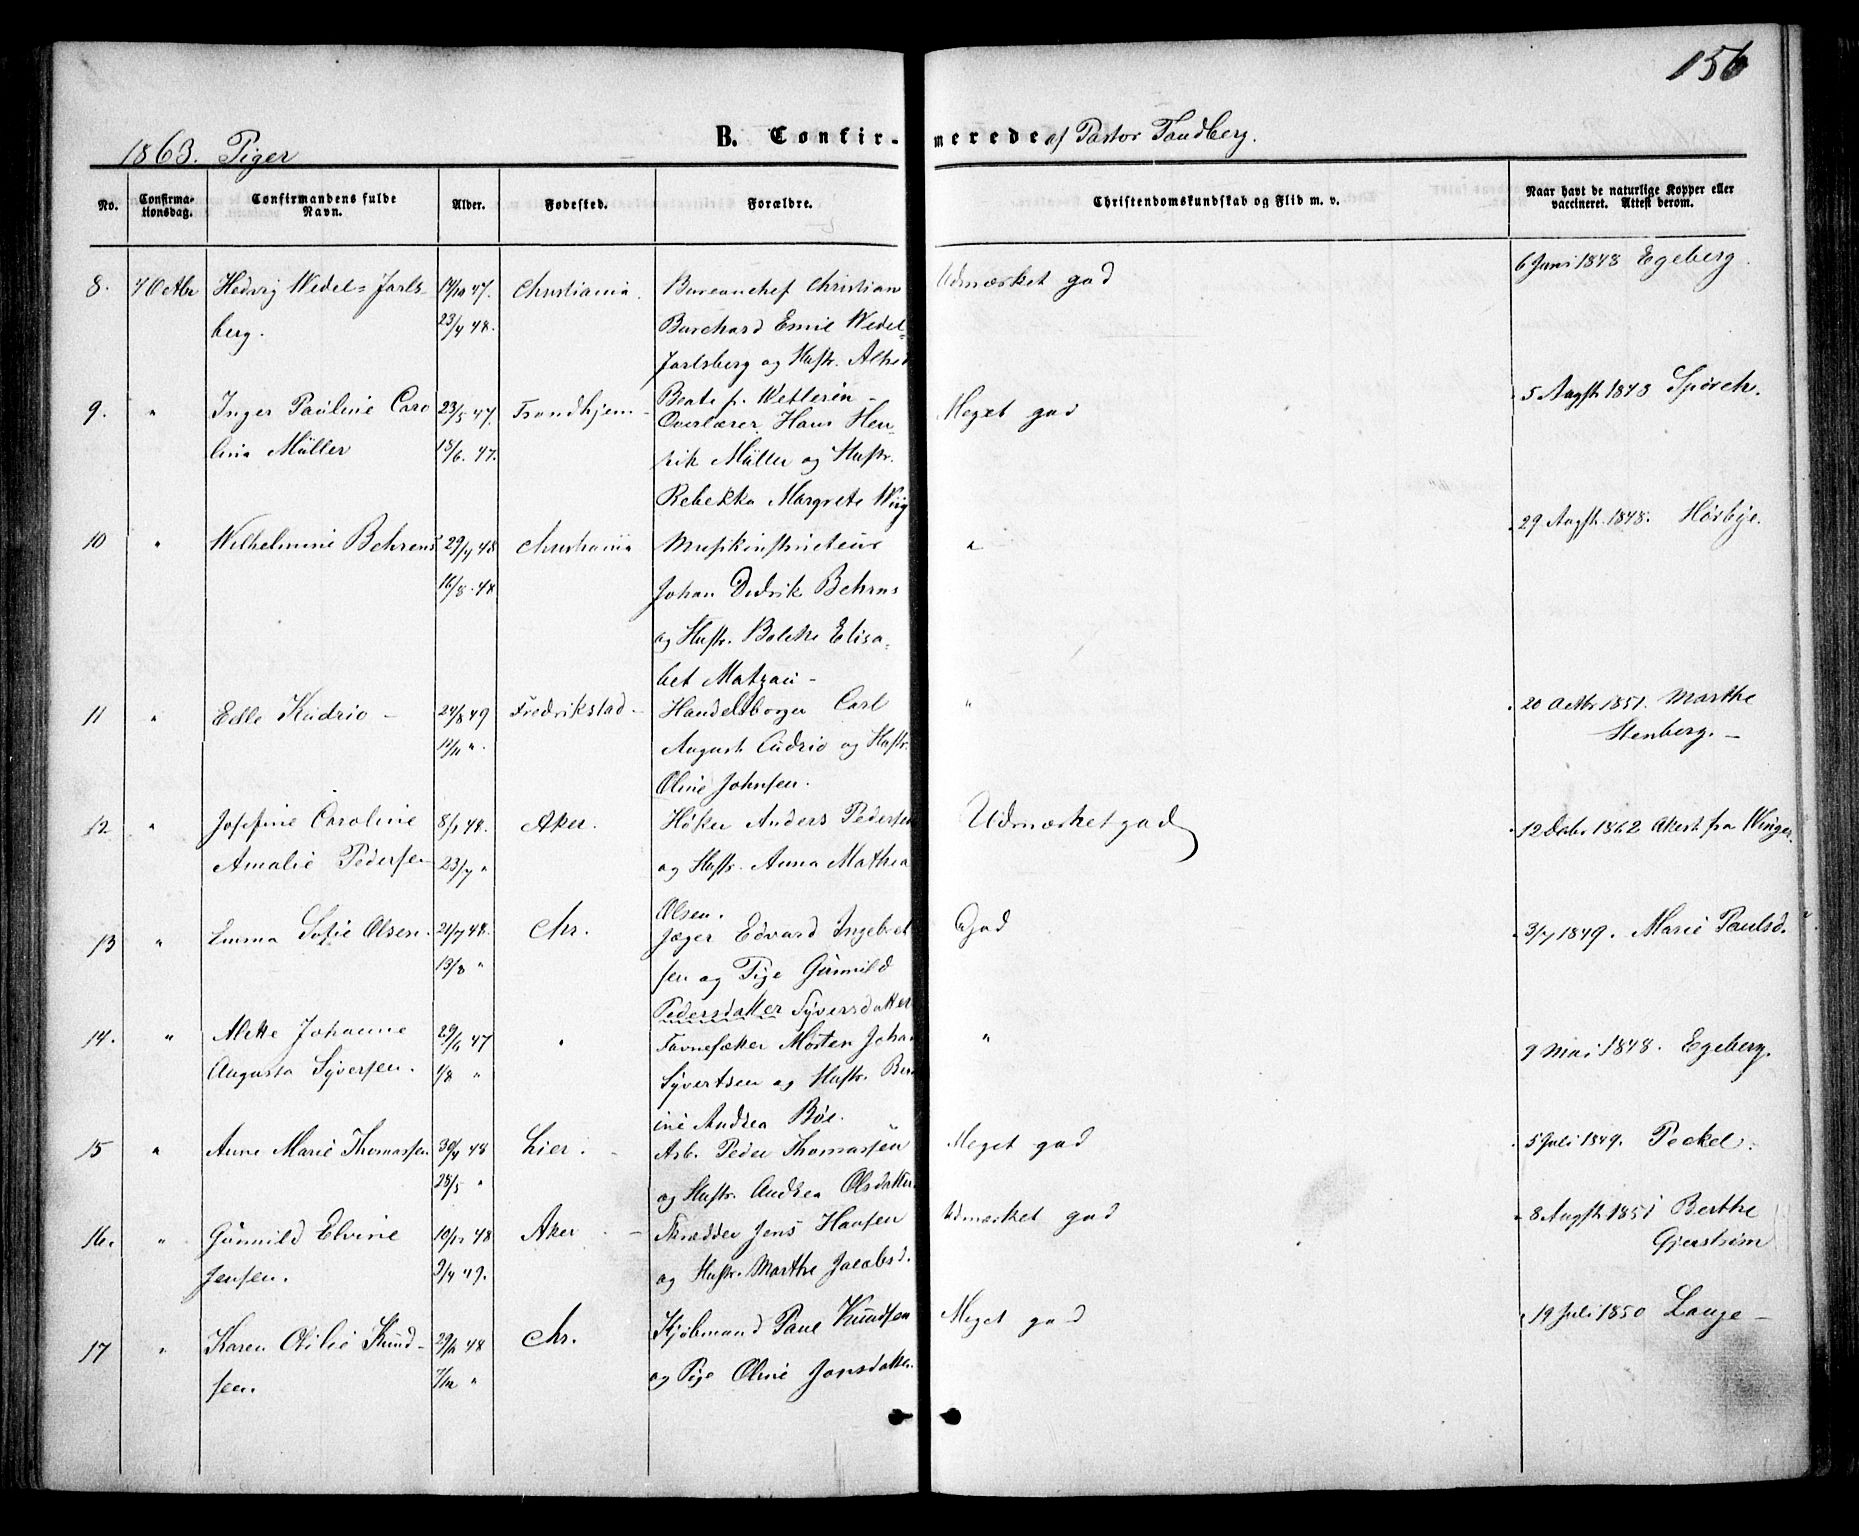 156
1863. Piger
B. Confir-
merede af Pastor Tandberg.
No.
Confirma-
tionsdag.
Confirmandens fulde
Navn.
Alder.
Fødested.
Forældre.
Christendomskundskab og Flid m. v.
Naar havt de naturlige Kopper eller
vaccineret. Attest derom.
8. 4 Octbr Hedvig Wedel-Jarls- 14/10 47. Christiania. Bureauchef Christian Udmærket god 6 Juni 1848 Egeberg.
berg. 23/4 48. Burchard Emil Wedel-
Jarlsberg og Hustr.
Beate f.
9. " Inger Pauline Caro 23/5 47. Trondhjem Overlærer Hans Hen- Meget god 5 Augst 1848 Spørck.
lina Müller 18/6. 47. rik Müller og Hustr.
Rebekka Margrete Wiig
10 " Wilhelmine Behrens 29/4 48 Christiania Musikinstructeur " 29 Augst. 1848. Hørbye.
16/8. 48 Johan Didrik Behrens
og Hustr. Bolette Elisa-
bet Matzau -
11 " Edle Kudrio - 24/8 49 Fredrikstad - Handelsborger Carl " 20 Octbr 1851. Marthe
11/11 ". August Cudrio og Hustr. Stenberg. -
Oline Johnsen.
12 " Josefine Caroline 8/1 48. Aker. Høker Anders Pedersen Udmærket god 12 Debr 1862 Akert fra Winge.
Amalie Pedersen 23/7 " og Hustr. Anna Mathea
Olsen.
13 " Emma Sofie Olsen. 21/7 48. Chr. Jæger Edvard Ingebret God 3/7 1849. Marie Paulsd.
13/8 " sen og Pige Gunnild
Pedersdatter Syversdatter
14. " Mette Johanne 29/6 47 " Favnesætter Morten Johan " 9 Mai 1848. Egeberg.
Augusta Syversen. 1/8 " Syvertsen og Hustr. Ber
ine Andrea Bøe.
15 " Anne Marie Thomassen 30/4 48 Lier. - Arb. Peder Thomassen Meget god 5 Juli 1849. Peckel.
28/5 " og Hustr. Andrea Olsdatter
16. " Gunnild Elvine 10/12 48 Aker - Skrædder Jens Hansen Udmærket god 8 Augst 1851 Berthe
Jensen. 9/4 49. og Hustr. Marthe Jacobsd. Gjerstrøm
17 " Karen Otilie Knud- 29/2 48 Chr. Kjøbmand Paul Knudsen Meget god 19 Juli 1850 Lange -
sen. 7/12 " og Pige Oline Jonsdatter